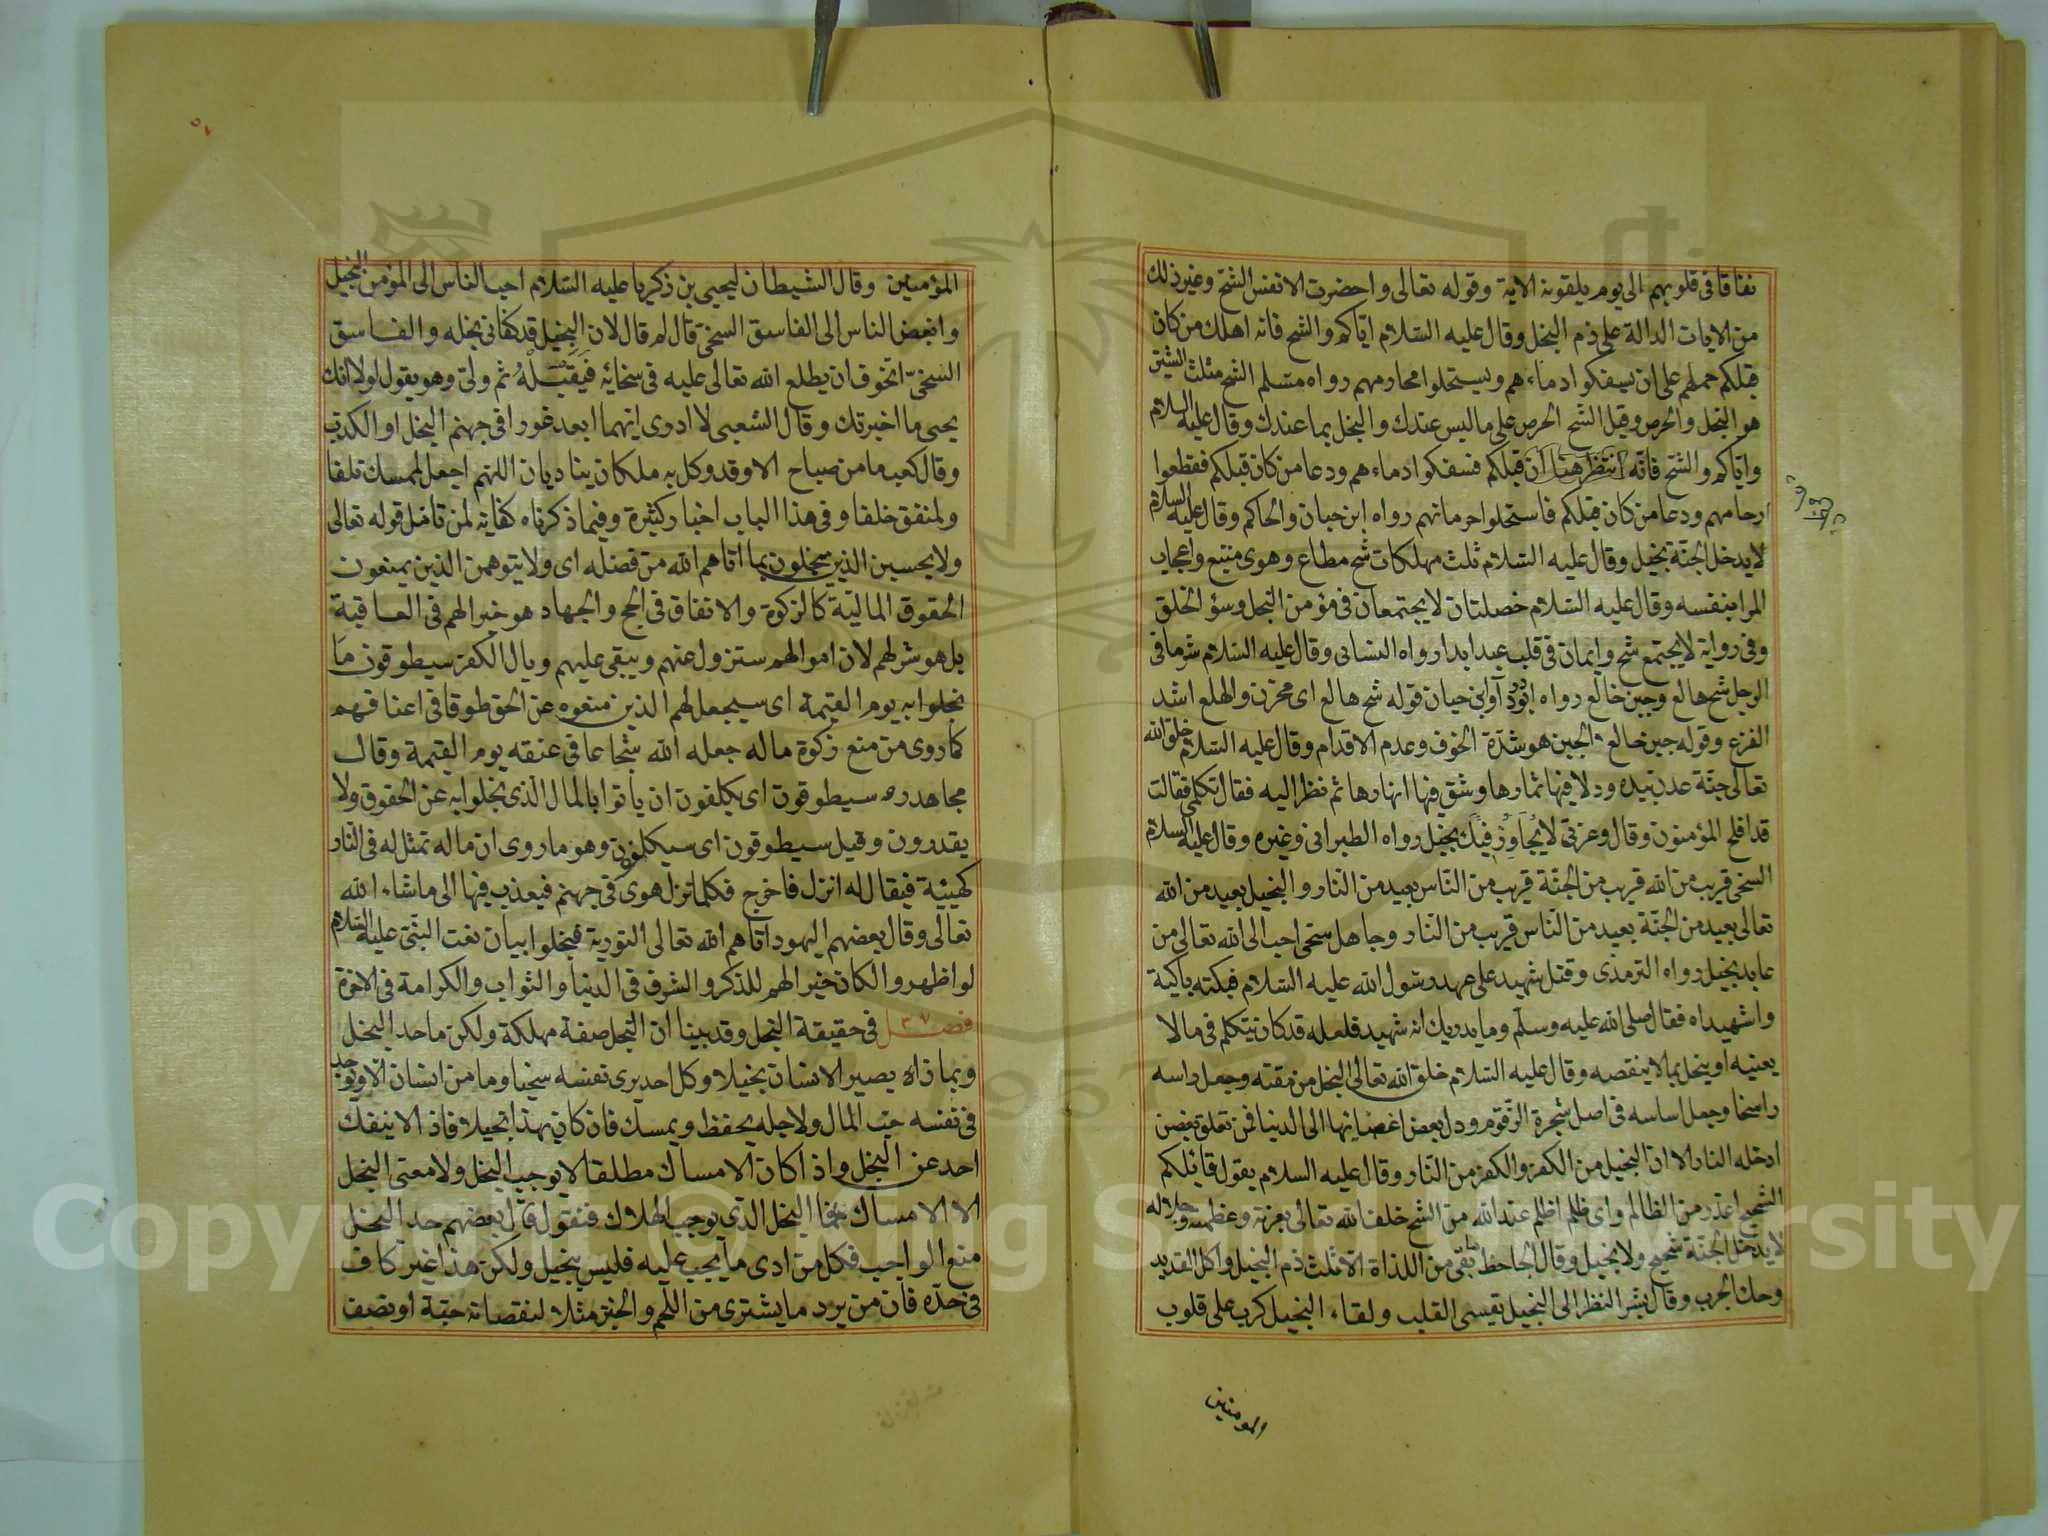 نفاقا فى قلوبهم الى يوم يلقونه الاية وقوله تعالى واحضرت الانفس الشح وغير ذلك
من الايات الدالة على ذم البخل وقال عليه السلام اياكم والشح فانه اهلك من كان
قبلكم حملهم على ان يسفكوا دماءهم ويستحلوا محارمهم رواه مسلم الشح مثلث الشين
هو البخل والحرص وقيل الشح الحرص على ما ليس عندك والبخل بما عندك وقال عليه السلام
واياكم والشح فانه قبلكم فسفكوا دماءهم ودعا من كان قبلكم فقطعوا
ارحامهم ودعا من كان قبلكم فاستحلوا حرماتهم رواه ابن حبان والحاكم وقال عليه السلام
لا يدخل الجنة بخيل وقال عليه السلام ثلث مهلكات شح مطاع وهوى متبع واعجاب
المرا بنفسه وقال عليه السلام خصلتان لا يجتمعان فى مؤمن البخل وسؤ الخلق
وفى رواية لا يجتمع شح وايمان فى قلب عبد ابدا رواه النسائى وقال عليه السلام شر ما فى
الرجل شح هالع وجبن خالع رواه ابو داود وابن حبان قوله شح هالع اى محزن والهلع اشد
الفزع وقوله جبن خالع الجبن هو شدة الخوف وعدم الاقدام وقال عليه السلام خلق الله
تعالى جنة عدن بيده ودلا فيها ثمارها وشق فيها انهارها ثم نظر اليه فقال تكلمى فقالت
قد افلح المؤمنون وقال وعزتى لا يجاوز فيك بخيل رواه الطبرانى وغيره وقال عليه السلام
السخى قريب من الله قريب من الجنة قريب من الناس بعيد من النار والبخيل بعيد من الله
تعالى بعيد من الجنة بعيد من الناس قريب من النار وجاهل سخى احب الى الله تعالى من
عابد بخيل رواه الترمذى وقتل شهيد على عهد رسول الله عليه السلام فبكته باكية
واشهيداه فقال صلى الله عليه وسلم وما يدريك انه شهيد فلعله قد كان يتكلم فى ما لا
يعنيه او يبخل بما لا ينقصه وقال عليه السلام خلق الله تعالى البخل من مقته وجعل راسه
راسخا وجعل اساسه فى اصل شجرة الزقوم ودل بعض اغصانها الى الدنيا فمن تعلق بغصن
ادخله النار الا ان البخيل من الكفر والكفر من النار وقال عليه السلام يقول قائلكم
الشحيح اعذر من الظالم واى ظلم اظلم عند الله من الشح خلف الله تعالى بعزته وعظمته وجلاله
لا يدخل الجنة شحيح ولا بخيل وقال الجاحظ ما بقى من اللذاة الا ثلث ذم البخيل واكل القديد
وحك الجرب وقال بشر النظر الى البخيل يقسى القلب ولقاء البخيل كرب على قلوب
المومنين
المؤمنين وقال الشيطان ليحيى بن ذكريا عليه السلام احب الناس الى المؤمن البخيل
وابغض الناس الى الفاسق السخى قال لم قال لان البخيل قد كفانى بخله والفاسق
السخى اتخوف ان يطلع الله تعالى عليه فى سخائه فيقبله ثم ولى وهو يقول لولا انك
يحيى ما اخبرتك وقال الشعبى لا ادرى ايهما ابعد غورا فى جهنم البخل او الكذب
وقال كعب ما من صباح الا وقد وكل به ملكان يناديان اللهم اجعل لممسك تلفا
ولمنفق خلفا وفى هذا الباب اخبار كثيرة وفيما ذكرناه كفاية لمن تامل قوله تعالى
ولا يحسبن الذين يبخلون بما اتاهم الله من فضله اى ولا يتوهمن الذين يمنعون
الحقوق المالية كالزكوة والانفاق فى الحج والجهاد هو خيرا لهم فى العاقبة
بل هو شر لهم لان اموالهم ستزول عنهم ويبقى عليهم وبال الكفر سيطوقون ما
بخلوا به يوم القيمة اى سيجعل لهم الذين منعوه عن الحق طوقا فى اعناقهم
كما روى من منع زكوة ماله جعله الله شجاعا فى عنقه يوم القيمة وقال
مجاهد ره سيطوقون اى يكلفون ان ياتوا بالمال الذى بخلوا به عن الحقوق ولا
يقدرون وقيل سيطوقون اى سيكلفون وهو ما روى ان ماله تمثل له فى النار
كهيئة فيقال له انزل فاخرج فكلما نزل هوى فى جهنم فيعذب فيها الى ما شاء الله
تعالى وقال بعضهم اليهود اتاهم الله تعالى التورية فبخلوا ببيان نعت النبى عليه السلام
لو اظهروا لكان خيرا لهم للذكر والشرف فى الدنيا والثواب والكرامة فى الاخرة
فصل ٣٧ فى حقيقة البخل وقد بينا ان البخل صفة مهلكة ولكن ما حد البخل
وبماذا يصير الانسان بخيلا وكل احد يرى نفسه سخيا وما من انسان الا ويوجد
فى نفسه حب المال ولاجله يحفظ ويمسك فان كان بهذا بخيلا فاذا لا ينفك
احد عن البخل واذا كان الامساك مطلقا لا يوجب البخل ولا معنى البخل
الا الامساك فما البخل الذى يوجب الهلاك فنقول قال بعضهم حد البخل
منع الواجب فكل من ادى ما يجب عليه فليس ببخيل ولكن هذا غير كاف
فى حده فان من يرد ما يشترى من اللحم والخبز مثلا لنقصانه حبة او نصف
Copyright © King Saud University
1957